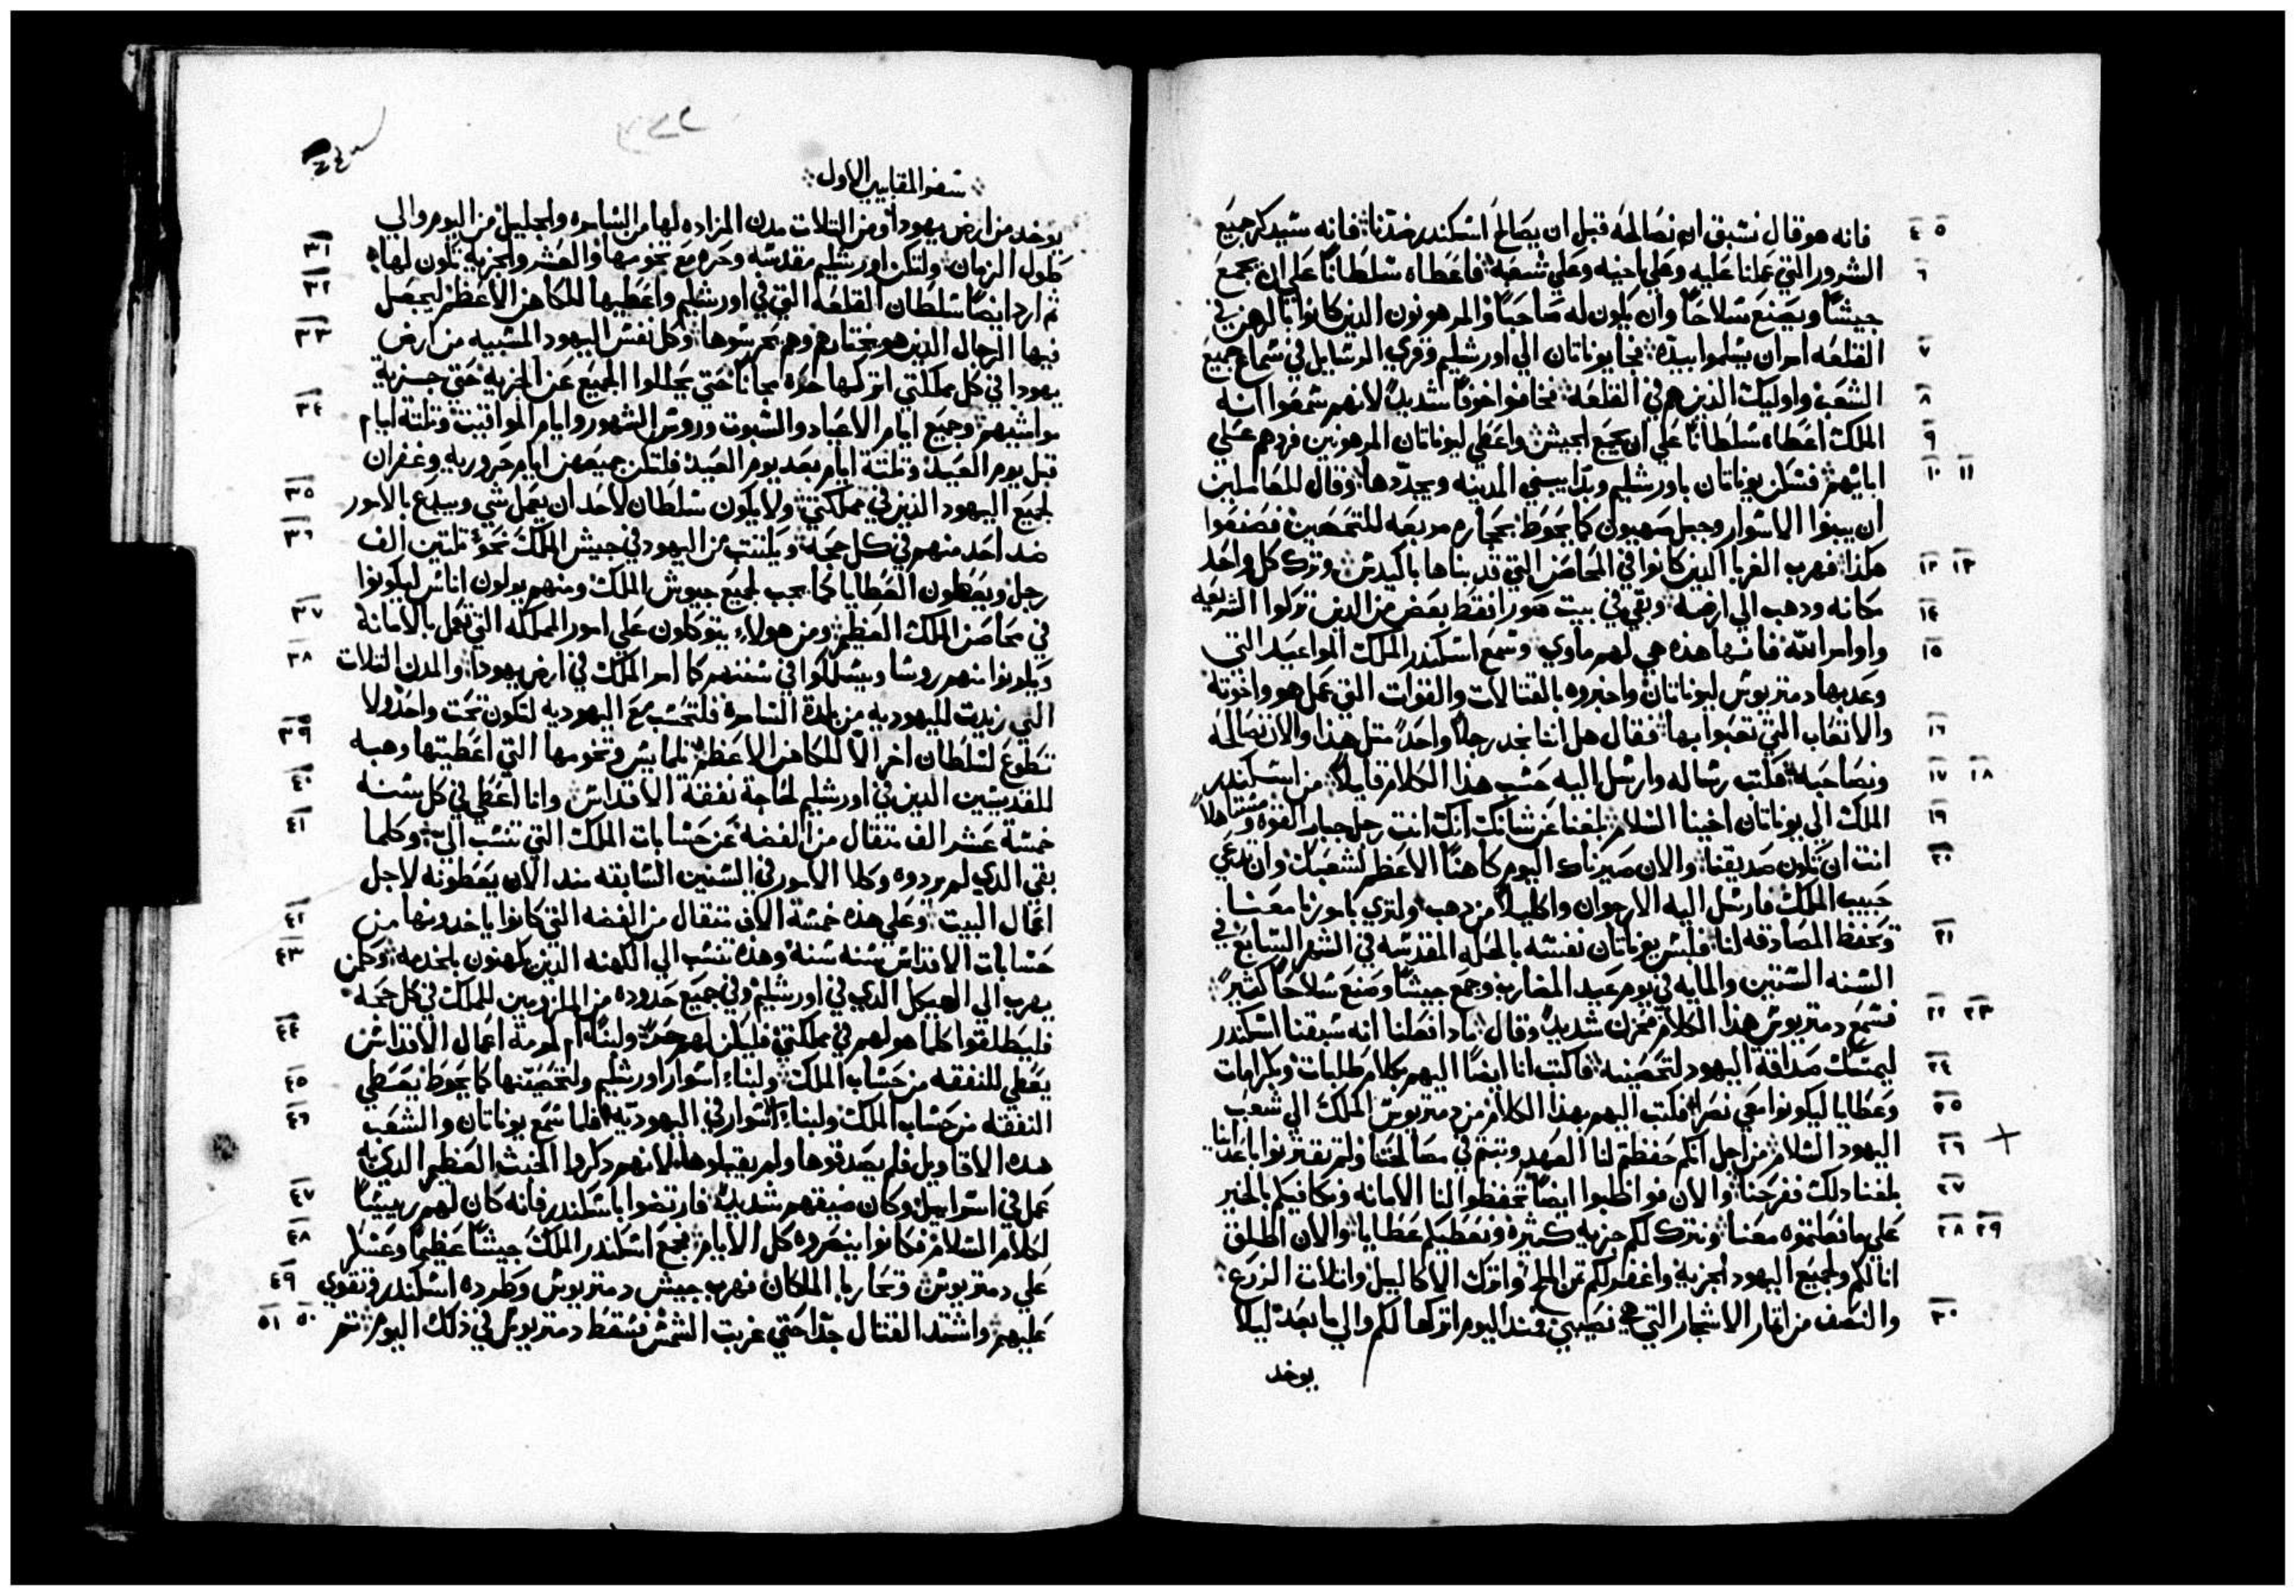 فانه هو قال نسبق ان نصالحه قبل ان يصالح اسكندر ضدنا فانه سيدكر جميع ٤ ٥
الشرور التي عملنا عليه وعلي اخيه وعلي شعبه فاعطاه سلطانًا علي ان يجمع ٦
جيشًا ويصنع سلاحًا وان يكون له صاحبًا والمرهونون الذين كانوا بالرهن في
القلعه امر ان يسلموا بيده فجا يوناتان الي اورشليم وقري الرسايل في سماع جميع ٧
الشعب واوليك الذين هم في القلعه فخافوا خوفًا شديدًا لانهم سمعوا انه ٨
الملك اعطاه سلطانًا علي ان يجمع الجيش واعطي ليوناتان المرهونين فردهم علي ٩
ابايهم فسكن يوناتان باورشليم وبدا يبني المدينه ويجددها وقال للعاملين ١٠ ١١
ان يبنوا الاسوار وجبل صهيون كما يحوط بحجاره مربعه للتحصين فصنعوا
هكذا فهرب الغربا الذين كانوا في المحاصن التي قد بناها باكيدس وترك كل واحد ١٢ ١٣
مكانه ودهب الي ارضه وبقي في بيت صورا فقط بعض من الذين تركوا الشريعه ١٤
واوامر الله فانها هذه هي لهم ماوي وسمع اسكندر الملك المواعيد التي ١٥
وعد بها دمتريوس ليوناتان واخبروه بالقتالات والقوات التي عمل هو واخوته
والاتعاب التي تعبوا بها فقال هل اننا نجد رجلًا واحدًا مثل هذا والان نصالحه ١٦
ونصاحبه فكتب رساله وارسل اليه حسب هذا الكلام قايلًا من اسكندر ١٧ ١٨
الملك الي يوناتان اخينا السلام بلغنا عن شانك انك انت رجل جبار القوه ومستاهلًا ١٩
انت ان تكون صديقنا والان صيرناك اليوم كاهنًا الاعظم لشعبك وان تدعي ٢٠
حبيب الملك فارسل اليه الارجوان واكليلًا من دهب ولتري بامورنا معنا
وتحفظ المصادقه لنا فلبس يوناتان نفسه بالحله المقدسه في الشهر السابع في ٢١
السنه الستين والمايه في يوم عيد المضارب وجمع جيشًا وصنع سلاحًا كثيرًا
فسمع دمتريوس هذا الكلام فحزن شديدًا وقال مادا فعلنا انه سبقنا اسكندر ٢٢ ٢٣
ليمسك صداقة اليهود لتحصينه فاكتب انا ايضًا اليهم بكلام طلبات وبكرامات ٢٤
وعطايا ليكونوا معي نصرًا فكتب اليهم بهذا الكلام من دمتريوس الملك الي شعب ٢٥
اليهود السلام من اجل انكم حفظتم لنا العهد وثبتم في مصالحتنا ولم تقتربوا باعدانا ٢٦
بلغنا دلك ففرحنا والان فواظبوا ايضًا تحفظوا لنا الامانه ونكافيكم بالخير ٢٧
علي ما فعلتموه معنا ونترك لكم جزيه كثيره ونعطيكم عطايا والان اطلق ٢٨ ٢٩
انا لكم ولجميع اليهود الجزيه واغفر لكم ثمن الملح واترك الاكاليل واتلات الزرع
والنصف من اثمار الاشجار التي هي نصيبي فمند اليوم اتركها لكم والي ما بعد ليلا ٣٠
يوخد
سفر المقابيين الاول
يوخد من ارض يهودا ومن التلات مدن المزاده لها من السامره والجليل من اليوم والي
طول الزمان ولتكن اورشليم مقدسه وحره مع تخومها والعشر والجزيه تكون لها ٣١
ثم ارد ايضًا سلطان القلعه التي في اورشليم واعطيها للكاهن الاعظم ليجعل ٣٢
فيها الرجال الذين هو يختارهم وهم يحرسوها وكل نفس اليهود المسبيه من ارض ٣٣
يهودا في كل مملكتي اتركها حره مجانًا حتي يحللوا الجميع عن الجزيه حتي جزية
مواشيهم وجميع ايام الاعياد والسبوت وروس الشهور وايام المواقيت وتلتة ايام ٣٤
قبل يوم العيد وتلتة ايام بعد يوم العيد فلتكن جميعهن ايام حروريه وغفران
لجميع اليهود الذين في مملكتي ولا يكون سلطان لاحد ان يعمل شي ويبدع بالامور ٣٥
ضد احد منهم في كل حجه ويكتتب من اليهود في جيش الملك نحو تلتين الف ٣٦
رجل ويعطون العطايا كما يجب لجميع جيوش الملك ومنهم يولون اناس ليكونوا
في محاصن الملك العظيم ومن هولاء يتوكلون علي امور المملكه التي تعمل بالامانه ٣٧
ويكونوا منهم روسا ويسلكوا في سننهم كما امر الملك في ارض يهودا والمدن التلات ٣٨
التي زيدت لليهوديه من بلدة السامره فلتحسب مع اليهوديه لتكون تحت واحد ولا
تطوع لسلطان اخر الا للكاهن الاعظم تلمايس وتخومها التي اعطيتها وهبه ٣٩
للقديسين الدين في اورشليم لحاجة نفقة الاقداس وانا اعطي في كل سنه ٤٠
خمسة عشر الف متقال من الفضه عن حسابات الملك التي تنسب الي وكلما ٤١
بقي الدي لم يردوه وكلا الامور في السنين السابقه مند الان يعطونه لاجل
اعمال البيت وعلي هذه خمسة الاف متقال من الفضه التي كانوا ياخدونها من ٤٢
حسابات الاقداس سنه سنه وهذه تنسب الي الكهنه الدين يكهنون بالخدمه وكل من ٤٣
يهرب الي الهيكل الدي في اورشليم وفي جميع حدوده من الملزومين للملك في كل حجه
فليطلقوا كلما هو لهم في مملكتي فليكن لهم حرًا ولبنا ام لمرمة اعمال الاقداس ٤٤
يعطي للنفقه من حساب الملك ولبناء اسوار اورشليم ولتحصينها كما يحوط يعطي ٤٥
النفقه من حساب الملك ولبناء اسوار في اليهوديه فلما سمع يوناتان والشعب ٤٦
هده الاقاويل فلم يصدقوها ولم يقبلوها لانهم دكروا الخبث العظيم الدي
عمل في اسراييل وكان ضيقهم شديدًا فارتضوا باسكندر فانه كان لهم رييسًا ٤٧
لكلام السلام وكانوا ينصروه كل الايام فجمع اسكندر الملك جيشًا عظيمًا وعسكر ٤٨
علي دمتريوس وتحاربا الملكان فهرب جيش دمتريوس وطرده اسكندر وتقوي ٤٩
عليهم واشتد القتال جدًا حتي غربت الشمس فسقط دمتريوس في ذلك اليوم ثم ٥٠ ٥١